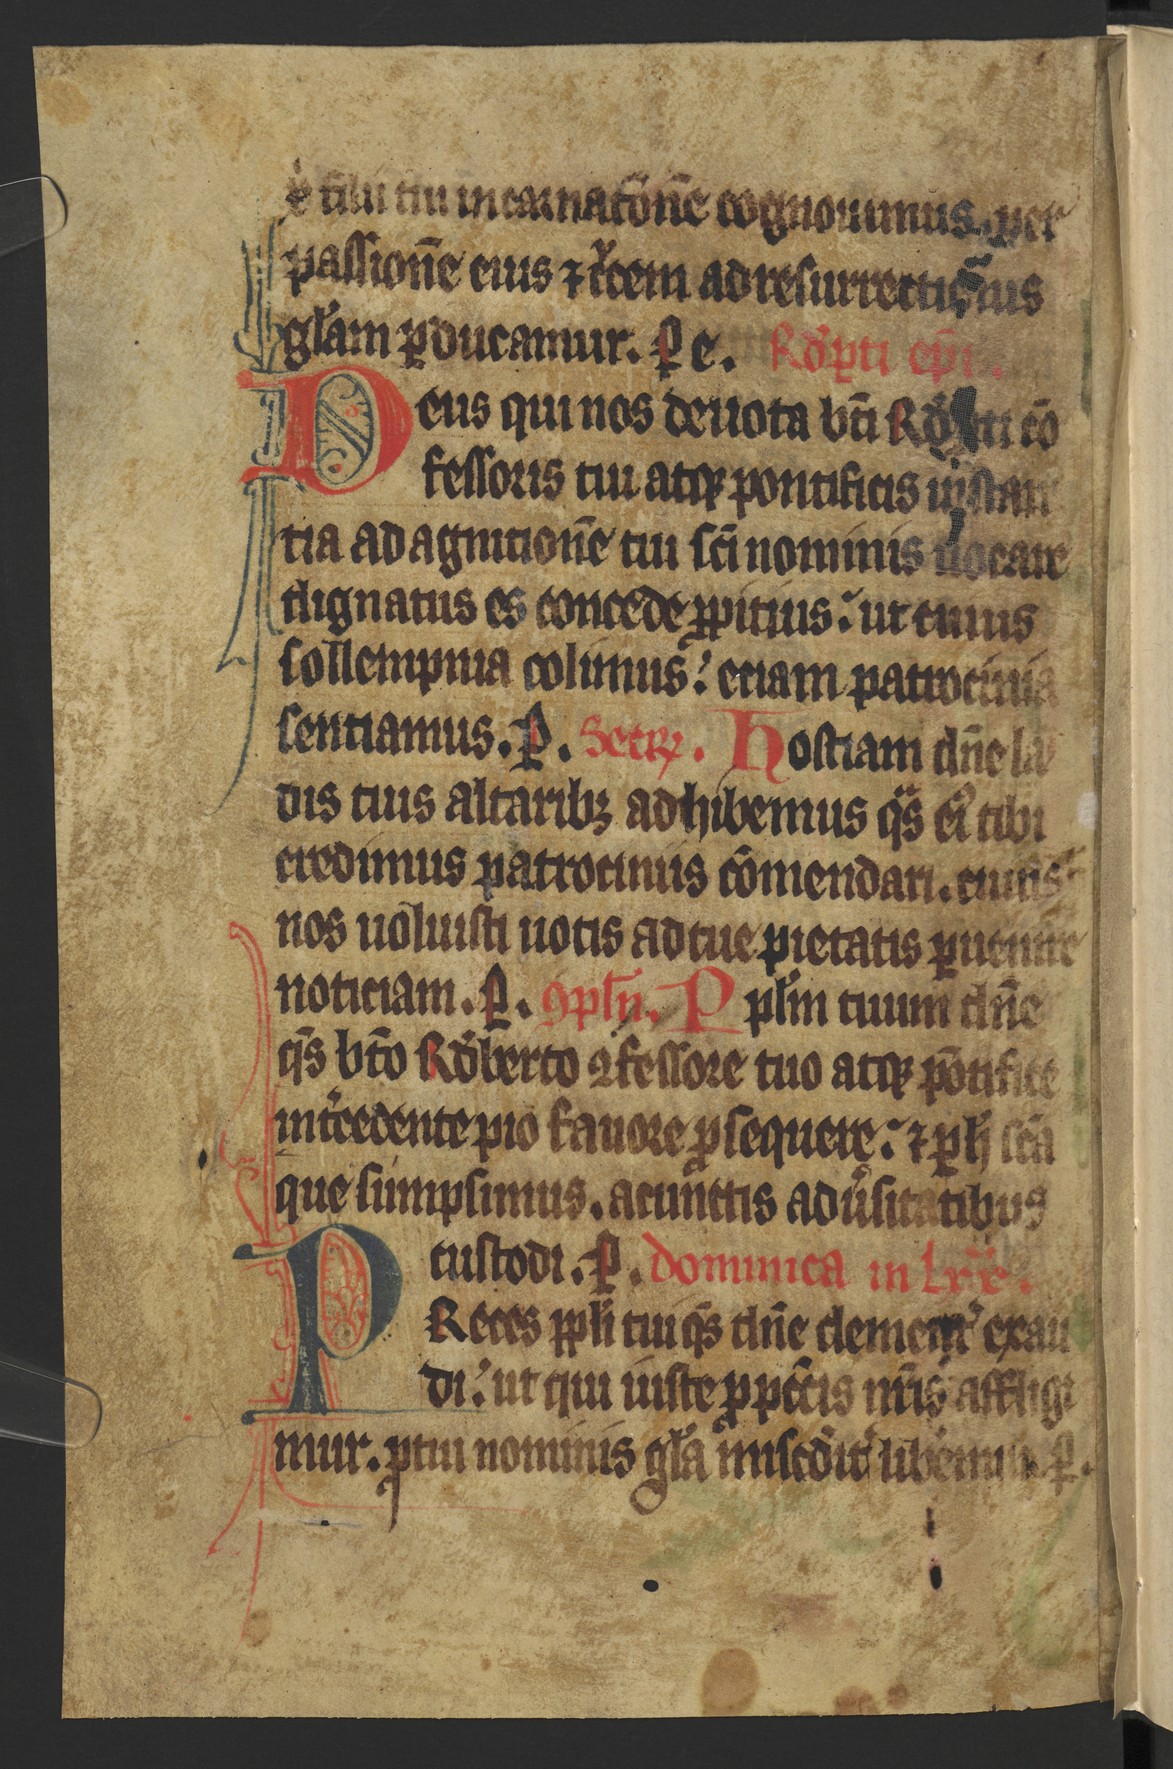 xp̄i filii tui incarnatōnē cognouimus. per
passionē eius ⁊ crcem ad resurrectiōnis
glām ꝑducamur. ꝑ e. Rodꝑti ep̄i.
Deus qui nos deuota bt̄i Rodꝑti cō
fessoris tui atqꝫ pontificis instan
tia ad agnitionē tui sc̄i nominis uocare
dignatus es concede ꝓpitius: ut cuius
sollempnia colimus: eciam patrocinia
sentiamus. ꝑ. Secrꝫ. Hostiam dn̄e lau
dis tuis altaribꝫ adhibemus qs̄ ei tibi
credimus patrociniis cōmendari. cuius
nos uoluisti uotis ad tue pietatis ꝑuenire
noticiam. ꝑ. ꝯpln̄. Ppl̄m tuum dn̄e
qs̄ bt̄o Rodberto ꝯfessore tuo atqꝫ pōtifice
intercedente pio fauore ꝓsequere: ⁊ ꝑ h̄ scā
que sumpsimus. a cunctis aduersitatibus
custodi. ꝑ. dominica in Lxx̄.
PReces ppl̄i tui qs̄ dn̄e clementer exau
di: ut qui iuste ꝓ pcc̄tis nr̄is affligi
mur. ꝓ tui nominis glā miscdit̄ libemur. ꝑ.